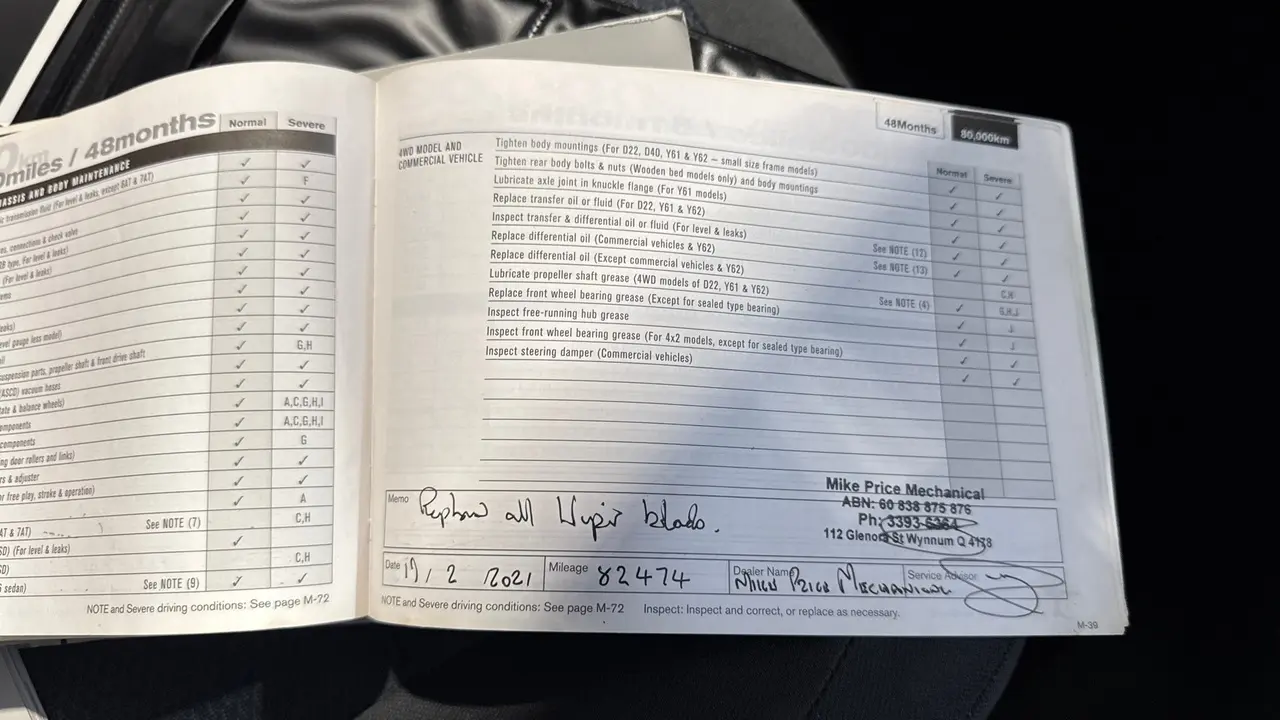 miles / 48months
Normal Severe
CHASSIS AND BODY MAINTENANCE
transmission fluid (For level & leaks, except 6AT & 7AT)
F
connections & check valve
type, For level & leaks)
(For level & leaks)
level gauge less model)
G,H
suspension parts, propeller shaft & front drive shaft
(ASCD) vacuum hoses
rotate & balance wheels)
A,C,G,H,I
components
A,C,G,H,I
components
G
door rollers and links)
& adjuster
for free play, stroke & operation)
A
& 7AT)
See NOTE (7)
C,H
(For level & leaks)
C,H
sedan)
See NOTE (9)
NOTE and Severe driving conditions: See page M-72
48Months
80,000km
Normal Severe
4WD MODEL AND
COMMERCIAL VEHICLE
Tighten body mountings (For D22, D40, Y61 & Y62 – small size frame models)
Tighten rear body bolts & nuts (Wooden bed models only) and body mountings
Lubricate axle joint in knuckle flange (For Y61 models)
Replace transfer oil or fluid (For D22, Y61 & Y62)
Inspect transfer & differential oil or fluid (For level & leaks)
Replace differential oil (Commercial vehicles & Y62) See NOTE (12)
Replace differential oil (Except commercial vehicles & Y62) See NOTE (13)
C,H
Lubricate propeller shaft grease (4WD models of D22, Y61 & Y62)
G,H,J
Replace front wheel bearing grease (Except for sealed type bearing) See NOTE (4)
J
Inspect free-running hub grease
J
Inspect front wheel bearing grease (For 4x2 models, except for sealed type bearing)
Inspect steering damper (Commercial vehicles)
Memo
all Wiper blades.
Mike Price Mechanical
ABN: 60 838 875 876
Ph: 3393 6364
112 Glenora St Wynnum Q 4178
Date 17/2 2021 Mileage 82474 Dealer Name Mike Price Mechanical Service Advisor
NOTE and Severe driving conditions: See page M-72 Inspect: Inspect and correct, or replace as necessary.
M-39